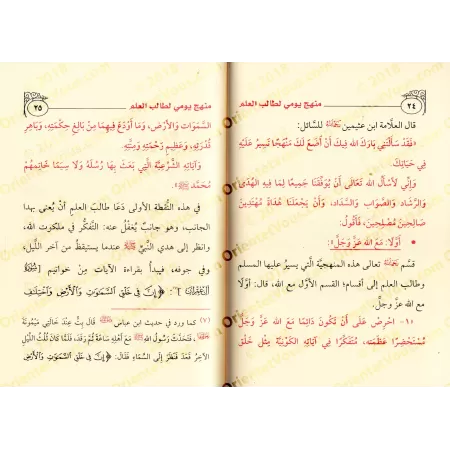 ٢٤
منهج يومي لطالب العلم
قال العلَّامة ابن عثيمين رَحِمَهُ اللَّهُ للسَّائل:
«فَقَدْ سَأَلْتَنِي بَارَكَ اللهُ فِيكَ أَنْ أَضَعَ لَكَ مَنْهَجًا تَسِيرُ عَلَيْهِ
فِي حَيَاتِكَ.
وَإِنِّي لَأَسْأَلُ اللهَ تَعَالَى أَنْ يُوَفِّقَنَا جَمِيعًا لِمَا فِيهِ الهُدَى
وَالرَّشَادُ وَالصَّوَابُ وَالسَّدَادُ، وَأَنْ يَجْعَلَنَا هُدَاةً مُهْتَدِينَ
صَالِحِينَ مُصْلِحِينَ، فَأَقُولُ:
• أَوَّلًا: مَعَ اللهِ عَزَّ وَجَلَّ».
قسَّم رَحِمَهُ اللَّهُ تعالى هذه المنهجيَّة الَّتي يسيرُ عليها المسلم
وطالب العلم إلى أقسام؛ القسم الأوَّل مع الله، قال: أوَّلًا
مع الله عزَّ وجلَّ.
«١- احْرِصْ عَلَى أَنْ تَكُونَ دَائِمًا مَعَ اللهِ عَزَّ وَجَلَّ
مُسْتَحْضِرًا عَظَمَتَه، مُتَفَكِّرًا فِي آيَاتِهِ الكَوْنِيَّةِ مِثْلَ خَلْقِ
منهج يومي لطالب العلم
٢٥
السَّمَوَاتِ وَالأَرْضِ، وَمَا أَوْدَعَ فِيهِمَا مِنْ بَالِغِ حِكْمَتِهِ، وَبَاهِرِ
قُدْرَتِهِ، وَعَظِيمِ رَحْمَتِهِ وَمِنَّتِهِ.
وَآيَاتِهِ الشَّرْعِيَّةِ الَّتِي بَعَثَ بِهَا رُسُلَهُ وَلَا سِيَمَا خَاتِمِهِمْ
مُحَمَّدٍ ﷺ».
في هذه النُّقطة الأولى دَعَا طالب العلمِ أنْ يُعنى بهذا
الجانب، وهو جانبٌ يُغفَلُ عنه: التَّفكُّر في ملكوت الله،
وانظر إلى هدي النَّبيِّ ﷺ عندما يستيقظُ من آخر اللَّيل،
وفي جوفه، فيبدأ بقراءة الآيات من خواتيم [سُورَةُ
] : ﴿إِنَّ فِي خَلْقِ ٱلسَّمَٰوَٰتِ وَٱلْأَرْضِ وَٱخْتِلَٰفِ
(٧) كما ورد في حديث ابن عباس قَالَ بِتُّ عِنْدَ خَالَتِي مَيْمُونَةَ
، فَتَحَدَّثَ رَسُولُ اللهِ ﷺ مَعَ أَهْلِهِ سَاعَةً ثُمَّ رَقَدَ، فَلَمَّا كَانَ ثُلُثُ اللَّيْلِ
الآخِرُ قَعَدَ فَنَظَرَ إِلَى السَّمَاءِ فَقَالَ: ﴿إِنَّ فِي خَلْقِ ٱلسَّمَٰوَٰتِ وَٱلْأَرْضِ